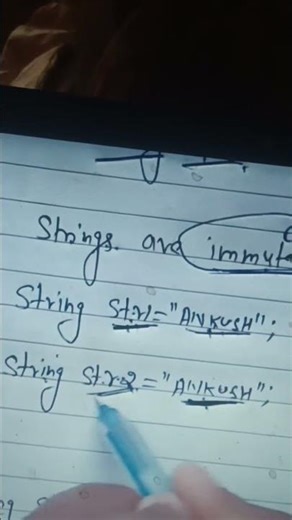 Strings are
String Str1="ANKUSH";
String Str2="ANKUSH";